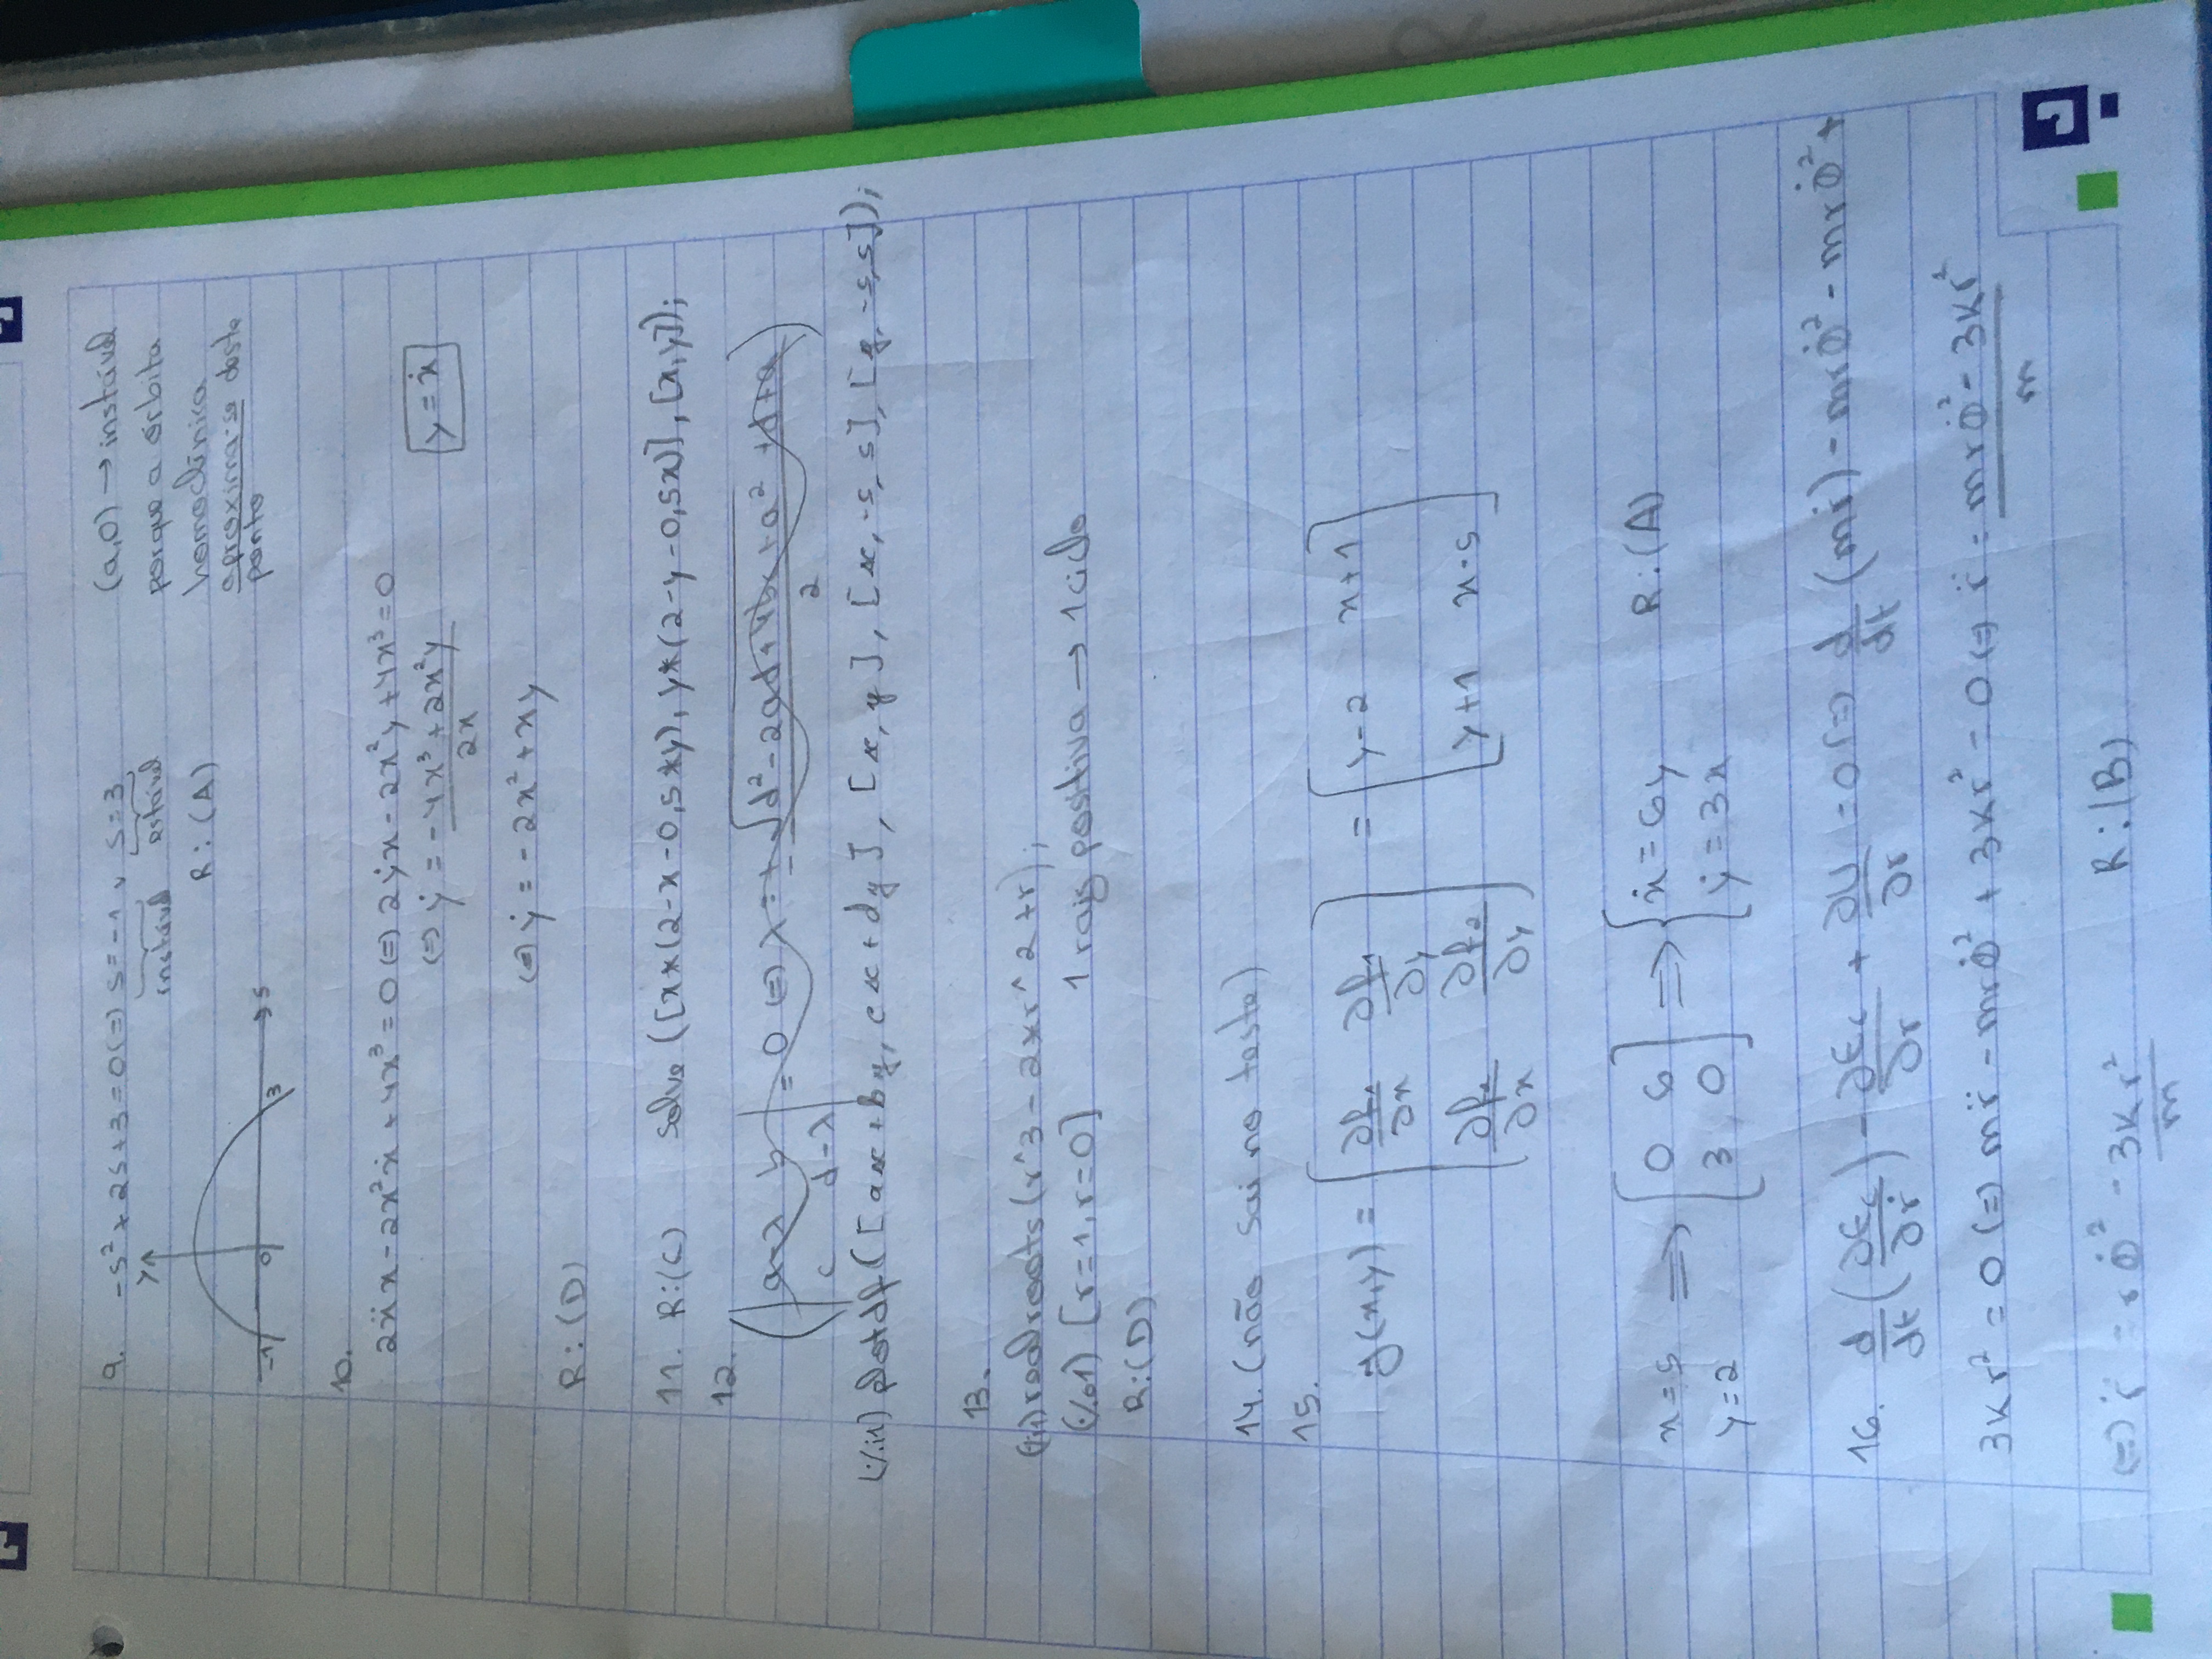 9. -s² + 2s + 3 = 0 (=) s = -1 ∨ s = 3
instável estável
R: (A)
y
-1 0 3 s
(a,0) → instável
porque a órbita
homoclínica
aproxima-se deste
ponto
10.
2ẍx - 2x²ẋ + 4x³ = 0 (=) 2ẏx - 2x²y + 4x³ = 0
(=) ẏ = (-4x³ + 2x²y) / 2x
y = ẋ
(=) ẏ = -2x² + xy
R: (D)
11. R: (C) solve ([x*(2-x-0,5*y), y*(2-y-0,5x)], [x,y]);
12.
(|a-λ b; c d-λ| = 0 (=) λ = ± (√(d² - 2ad + 4bc + a²) + d + a) / 2)
(%i1) plotdf ([ax+by, cx+dy], [x, y], [x, -5, 5], [y, -5, 5]);
13.
(%i1) realroots (r^3 - 2*r^2 + r);
(%o1) [r=1, r=0] 1 raiz positiva → 1 ciclo
R: (D)
14. (não sai no teste)
15.
J(x,y) = [∂f₁/∂x ∂f₁/∂y; ∂f₂/∂x ∂f₂/∂y] = [y-2 x+1; y+1 x-5]
x = 5 y = 2 ⟹ [0 6; 3 0] ⟹ { ẋ = 6y ẏ = 3x R: (A)
16. d/dt (∂Ec/∂ṙ) - ∂Ec/∂r + ∂U/∂r = 0 (=) d/dt (mṙ) - mrθ̇² - mrθ̇² +
3Kr² = 0 (=) mr̈ - mrθ̇² + 3Kr² = 0 (=) r̈ = (mrθ̇² - 3Kr²) / m
(=) r̈ = rθ̇² - 3Kr² / m R: (B)